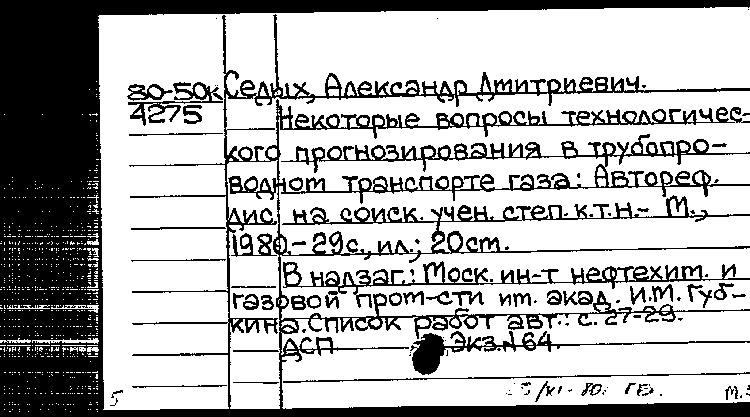 80-50к Седых, Александр Дмитриевич.
4275 Некоторые вопросы технологичес-
кого прогнозирования в трубопро-
водном транспорте газа: Автореф.
дис. на соиск. учен. степ. к.т.н.- М.,
1980.- 29с., ил.; 20см.
В надзаг.: Моск. ин-т нефтехим. и
газовой пром-сти им. акад. И.М. Губ-
кина. Список работ авт.: с. 27-29.
ДСП Экз.№64.
5 /XI - 80. М.